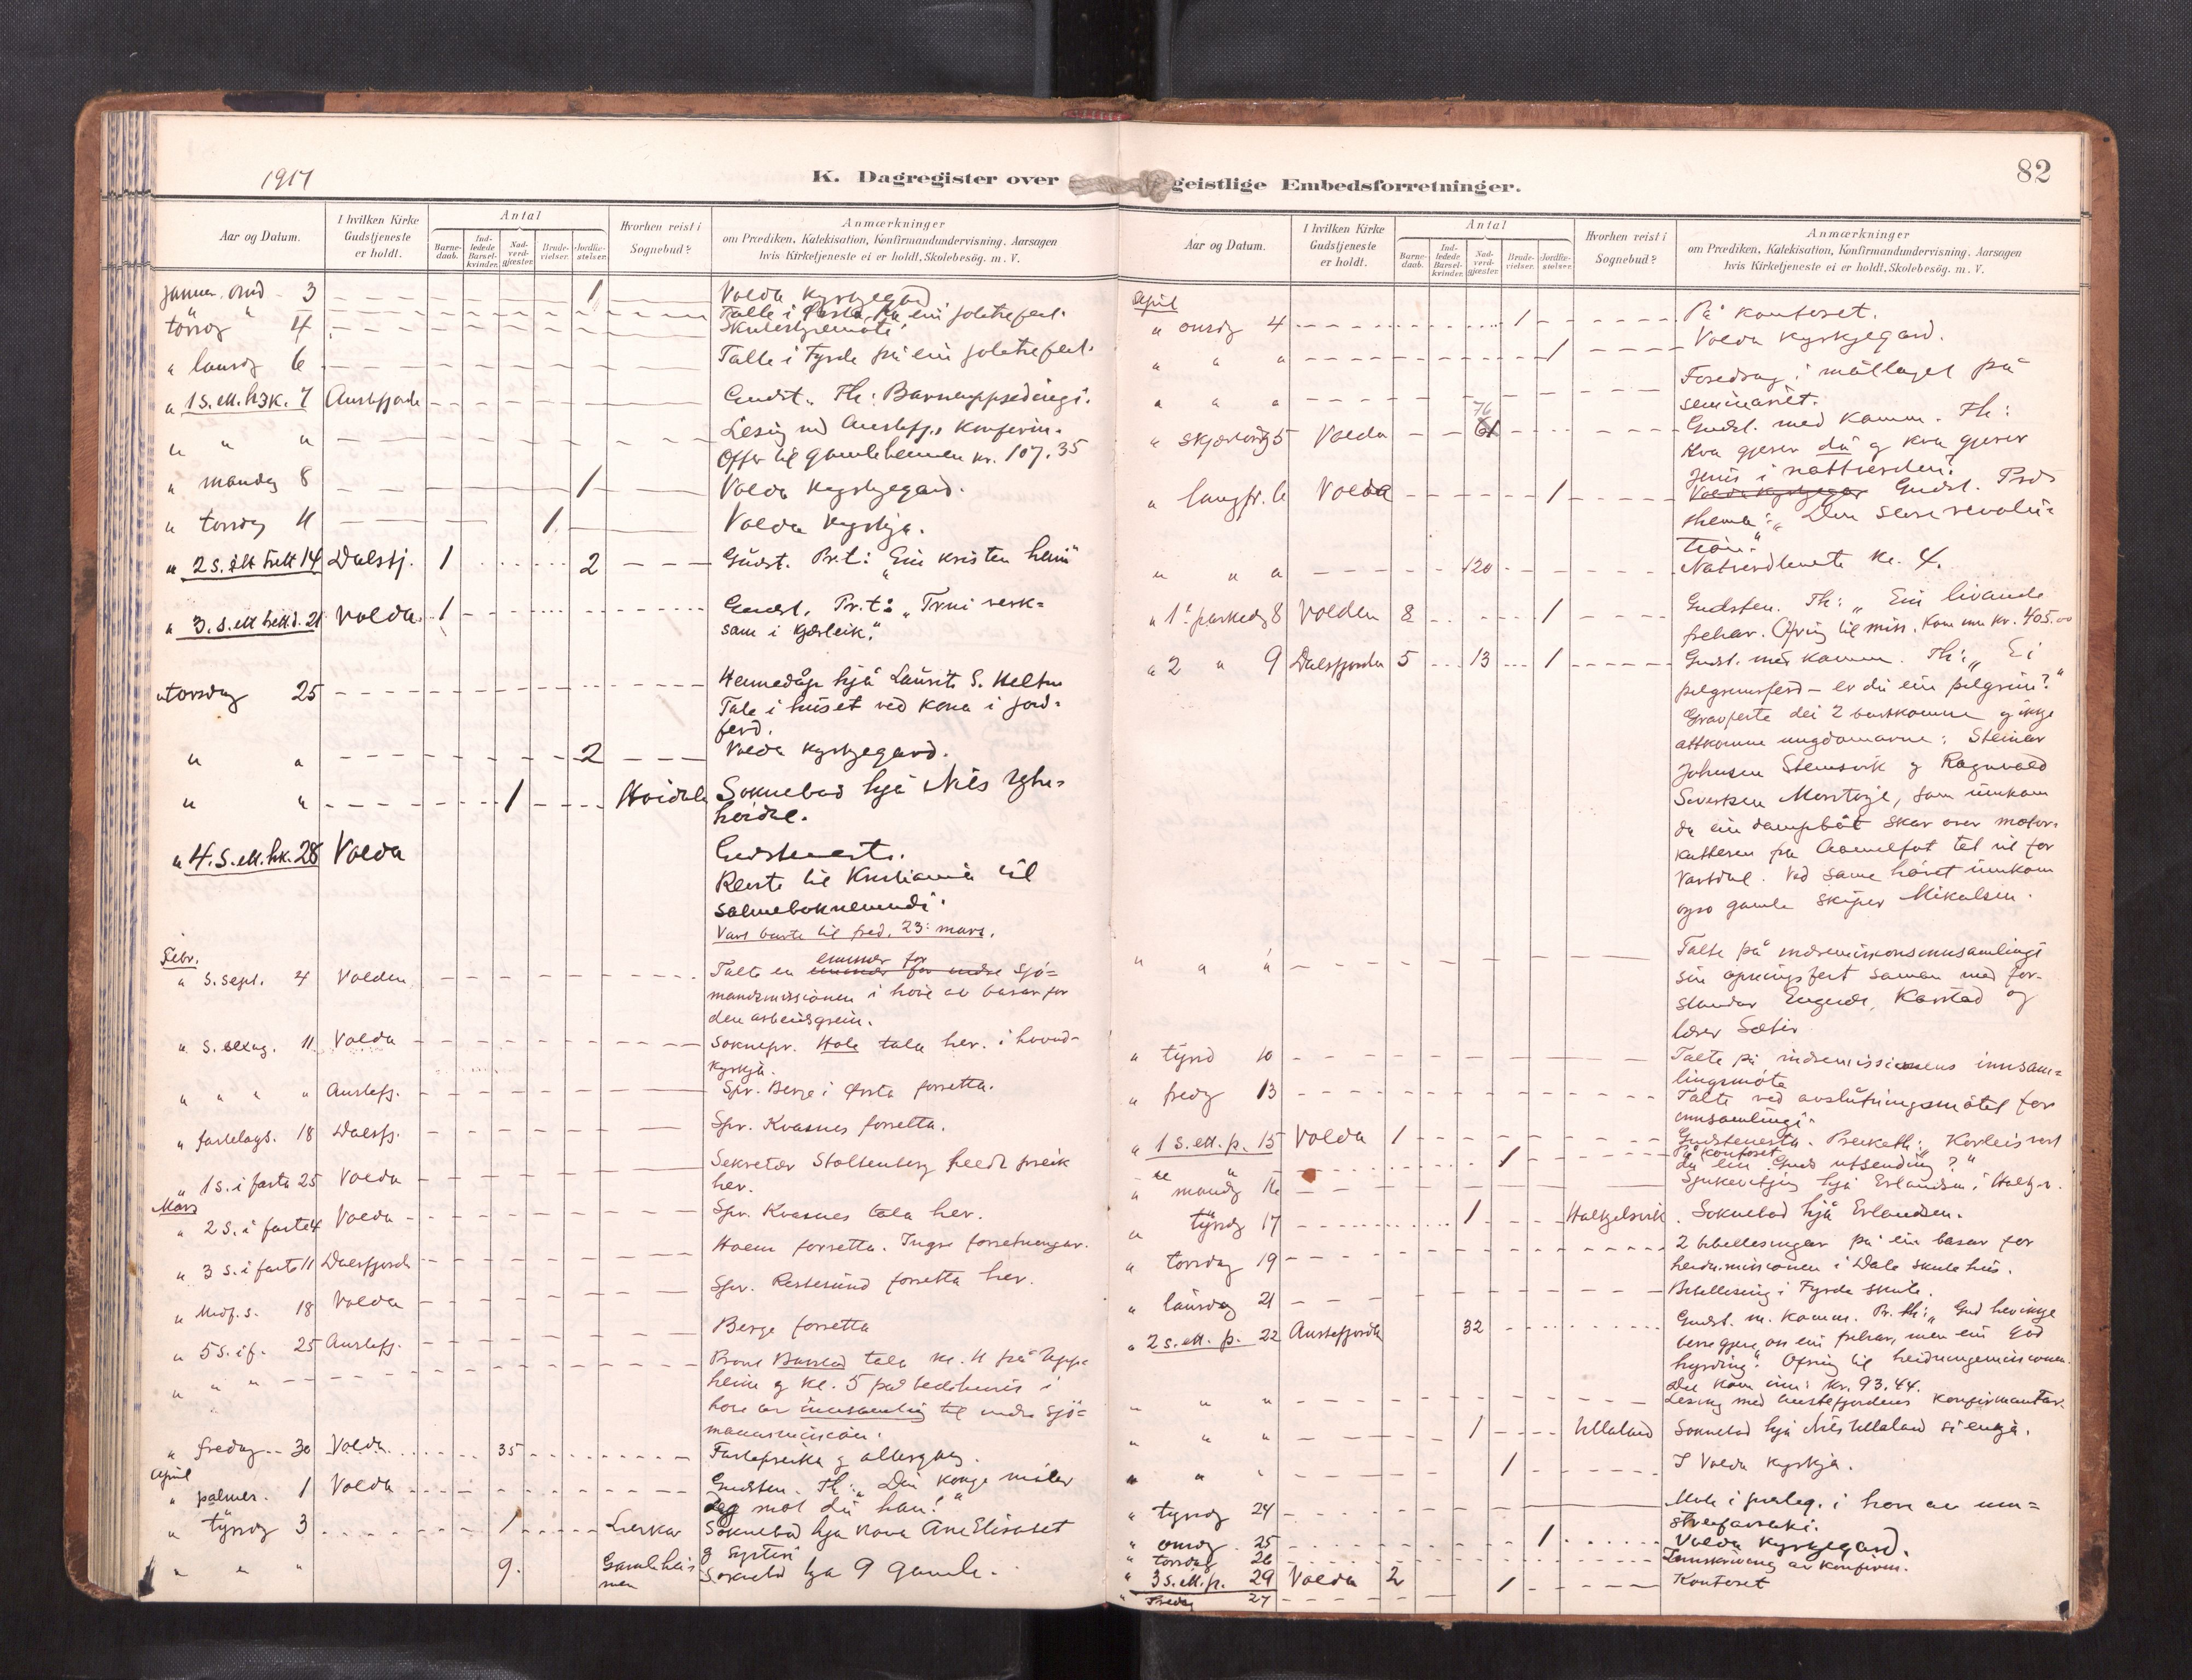 1917
K. Dagregister over geistlige Embedsforretninger.
82
Aar og Datum.
I hvilken Kirke Gudstjeneste er holdt.
Antal
Barne-daab.
Ind-ledede Barsel-kvinder.
Nad-verd-gjæster.
Brude-vielser.
Jordfæ-stelser.
Hvorhen reist i Sognebud?
Anmærkninger
om Prædiken, Katekisation, Konfirmandundervisning, Aarsagen
hvis Kirketjeneste ei er holdt, Skolebesög. m. V.
Januar. onsd 3 1 Volda kyrkjegard
torsdg " 4 Talte i Ørsta på ein joletrefest.
Skulestyremöte
" laurdg 6 Talte i Fyrde på ein joletrefest.
" 1 S. ett. h3k. 7 Austefjorde Gudst. Th: Barneuppsedingi.
" " " Lesing med Austefj.s konfirm.
Offer til gamleheimen kr. 107.35
" mandag 8 1 Volda kyrkjegard.
" torsdag 11 1 Volda kyrkja.
" 2 S. 14 Dalsfj. 1 2 Gudst. Pr.t: "Ein kristen heim"
" 3. S. 21 Volda. 1 Gudst. Pr.t: "Trui verk=
sam i kjærleik."
" torsdag 25 Heimedåp hjå Laurits S.
Tale i huset ved kona i jord=
ferd.
" " 2 Volda kyrkjegard.
" " 1 Høidale Soknebod hjå Nils
høidal.
" 4. S. ett. hk. 28 Volda Gudstenesta.
Reiste til Kristiania til
salmeboknemndi.
Vart burte til fred. 23: mars.
Febr.
" S. sept. 4 Volden Talte en emner for sjö=
mandsmissionen i høve av basar for
den arbeidsgrein.
" S. sexag. 11 Volda Soknepr. Hole tala her. i hovud-
kyrkja.
" " " " Austefj. Spr. Berge i Ørsta forretta.
" fastelags. 18 Dalsfj. Spr. Kvasnes forretta.
" 1 S. i fasta 25 Volda Sekretær Stoltenberg heldt preik
her.
Mars
" 2 S. i faste 4 Volda Spr. Kvasnes tala her.
" 3 S. i faste 11 Dalsfjord forretta. Ingre forretningar.
" Midf. s. 18 Volda Spr. forretta her.
" 5 S. i f. 25 Austefj. Berge forretta
" " " Prost Barstad tala kl. 11 på Uppe
heim g kl. 5 på bedehuset i
høve av innsamling til indre sjö=
mannsmission.
" fredag 30 Volda 35 Fastepreika g altergang.
April
" palmes. 1 Volda Gudsten. Th: "Din konge möter
deg möt du han!"
" tysdg 3 1 Soknebod hja kona Ane Elisabet
g systeri
" " " 9. Gamlehei-
men Soknebod hja 9 gamle.
Aar og Datum.
I hvilken Kirke Gudstjeneste er holdt.
Antal
Barne-daab.
Ind-ledede Barsel-kvinder.
Nad-verd-gjæster.
Brude-vielser.
Jordfæ-stelser.
Hvorhen reist i Sognebud?
Anmærkninger
om Prædiken, Katekisation, Konfirmandundervisning, Aarsagen
hvis Kirketjeneste ei er holdt, Skolebesög. m. V.
April
" onsdg 4 1 På kontoret.
" " " 1 Volda kyrkjegard.
" " " Foredrag i mållaget på
seminariet.
" skjærtorsdg 5 Volda 76 61 Gudst. med komm. Th:
Kva gjerer du g kva gjerer
Jesus i nattverden?
" langfr. 6 Volda 1 Volda kyrkjegar Gudst. Prds
thema: "Den store revolu=
tion."
" " " 120 Natverdteneste kl. 4.
" 1: paskedg 8 Volden 8 1 Gudsten. Th: "Ein livande
frelsar. Ofring til miss. Kom inn kr. 405.00
" 2 " 9 Dalsfjorden 5 13 1 Gudst. med komm. Th: "Ei
pilgrimsferd - er du ein pilgrim?"
Gravfeste dei 2 burtkomne g ikkje
attkomne ungdomarne: Steinar
Johnsen Steinsvik g Ragnvald
Sivertsen, som umkom
då ein dampbåt skar over motor-
kutteren fra tet ut for
Vartdal. Ved same høvet umkom
ogso gamle skiper Mikalsen.
" " " Talte på indremisjonsinnsamlingi
sin opningsfest saman med for-
standar, Karstad og
lærer Sæter
" tysd 10 Talte på indremissionens innsam=
lingsmöte
" fredg 13 Talte ved avslutningsmötet for
innsamlingi.
" 1 S. ett. p. 15 Volda 1 Gudstenesta. Preiketh: "Korleis vert
du ein Guds utsending?"
" " 1 På kontoret
" mandg 16 Sjukevitjing hjå Erlandsen i
" tysdg 17 1 Halkjelsvik. Soknebod hjå Erlandsen.
" torsdag 19 2 bibellesingar på ein basar for
heidn.missionen i Dale skule hus.
" laurdag 21 Bibellesing i Fyrde skule.
" 2 s. ett. p. 22 Austefjorde 32 Gudst. m. komm. Pr. th: "Gud hev ikkje
berre gjeve oss ein frelsar, men ein god
hyrding." Ofring til heidningemissionen
Det kom inn: kr. 93.44.
" " " Lesing med Austefjordens konfirmantar.
" " " 1 Ullaland Soknebod hjå Nils Ullaland si enkja.
" " " 1 I Volda kyrkja.
" tysdg 24 Möte i forlag. i høve av
" onsdg 25 1 Volda kyrkjegard.
" torsdag 26 Innskriving av konfirm.
" 3 S. ett. p. 29 Volda 2 1 Kontoret
" Fredag 27